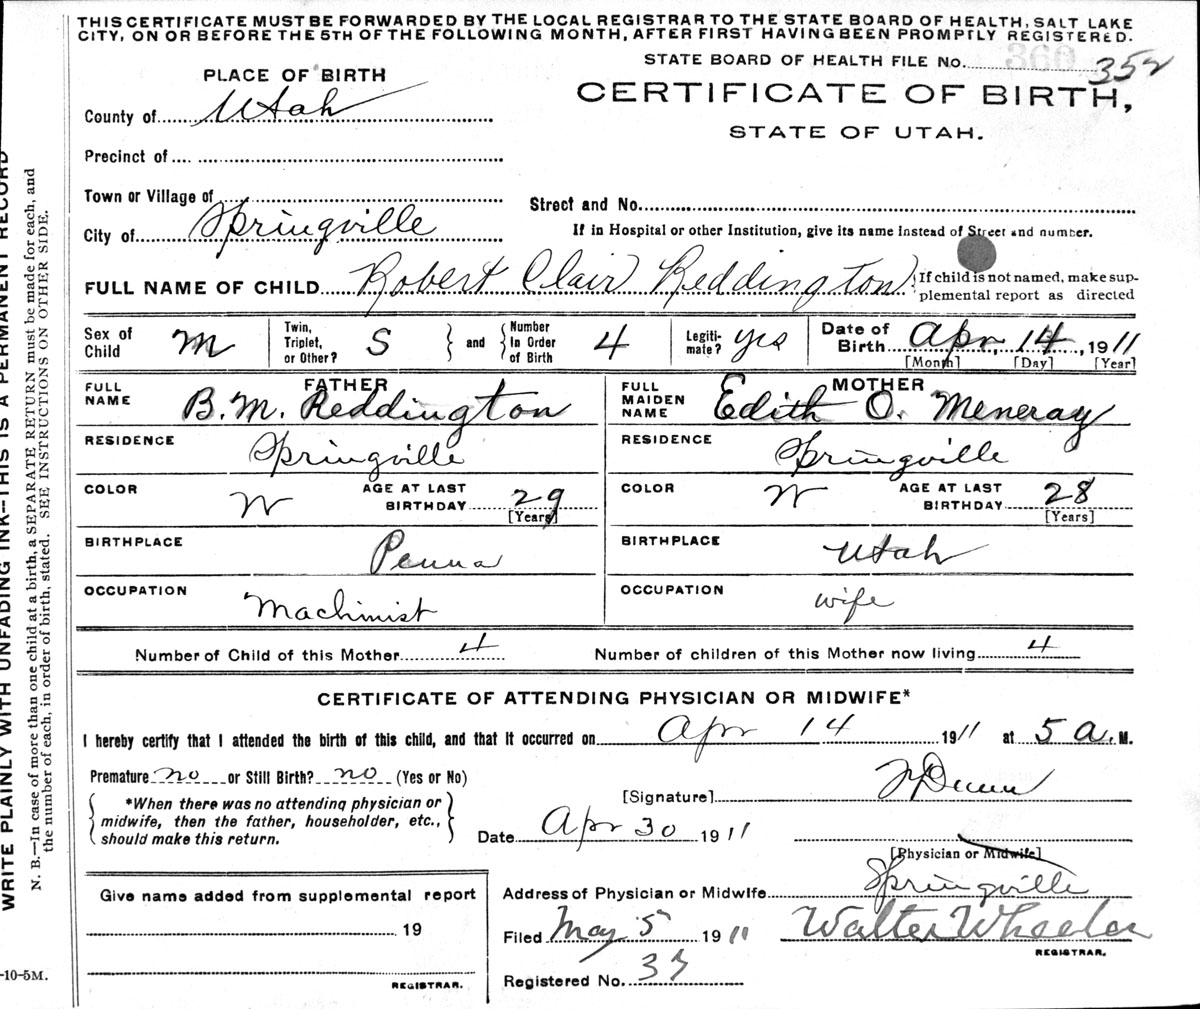 THIS CERTIFICATE MUST BE FORWARDED BY THE LOCAL REGISTRAR TO THE STATE BOARD OF HEALTH, SALT LAKE
CITY, ON OR BEFORE THE 5TH OF THE FOLLOWING MONTH, AFTER FIRST HAVING BEEN PROMPTLY REGISTERED.
STATE BOARD OF HEALTH FILE No. 360 352
PLACE OF BIRTH
CERTIFICATE OF BIRTH,
STATE OF UTAH.
County of Utah
Precinct of
Town or Village of
Street and No.
City of Springville
If in Hospital or other Institution, give its name instead of Street and number.
FULL NAME OF CHILD Robert Clair Reddington
If child is not named, make sup-
plemental report as directed
Sex of
Child M
Twin,
Triplet,
or Other? S
and
Number
In Order
of Birth 4
Legiti-
mate? yes
Date of
Birth Apr, 14, 1911
[Month] [Day] [Year]
FATHER
FULL
NAME B. M. Reddington
MOTHER
FULL
MAIDEN
NAME Edith O. Meneray
RESIDENCE Springville
RESIDENCE Springville
COLOR W
AGE AT LAST
BIRTHDAY 29
[Years]
COLOR W
AGE AT LAST
BIRTHDAY 28
[Years]
BIRTHPLACE Penna
BIRTHPLACE Utah
OCCUPATION Machinist
OCCUPATION wife
Number of Child of this Mother 4
Number of children of this Mother now living 4
CERTIFICATE OF ATTENDING PHYSICIAN OR MIDWIFE*
I hereby certify that I attended the birth of this child, and that it occurred on Apr 14 1911 at 5 a. M.
Premature no or Still Birth? no (Yes or No)
*When there was no attending physician or
midwife, then the father, householder, etc.,
should make this return.
[Signature]
Date Apr 30 1911
[Physician or Midwife]
Address of Physician or Midwife Springville
Give name added from supplemental report
19
REGISTRAR.
Filed May 5 1911 Walter Wheeler
REGISTRAR.
Registered No. 37
WRITE PLAINLY WITH UNFADING INK—THIS IS A PERMANENT RECORD
N. B.—In case of more than one child at a birth, a SEPARATE RETURN must be made for each, and
the number of each, in order of birth, stated. SEE INSTRUCTIONS ON OTHER SIDE.
-10-5M.